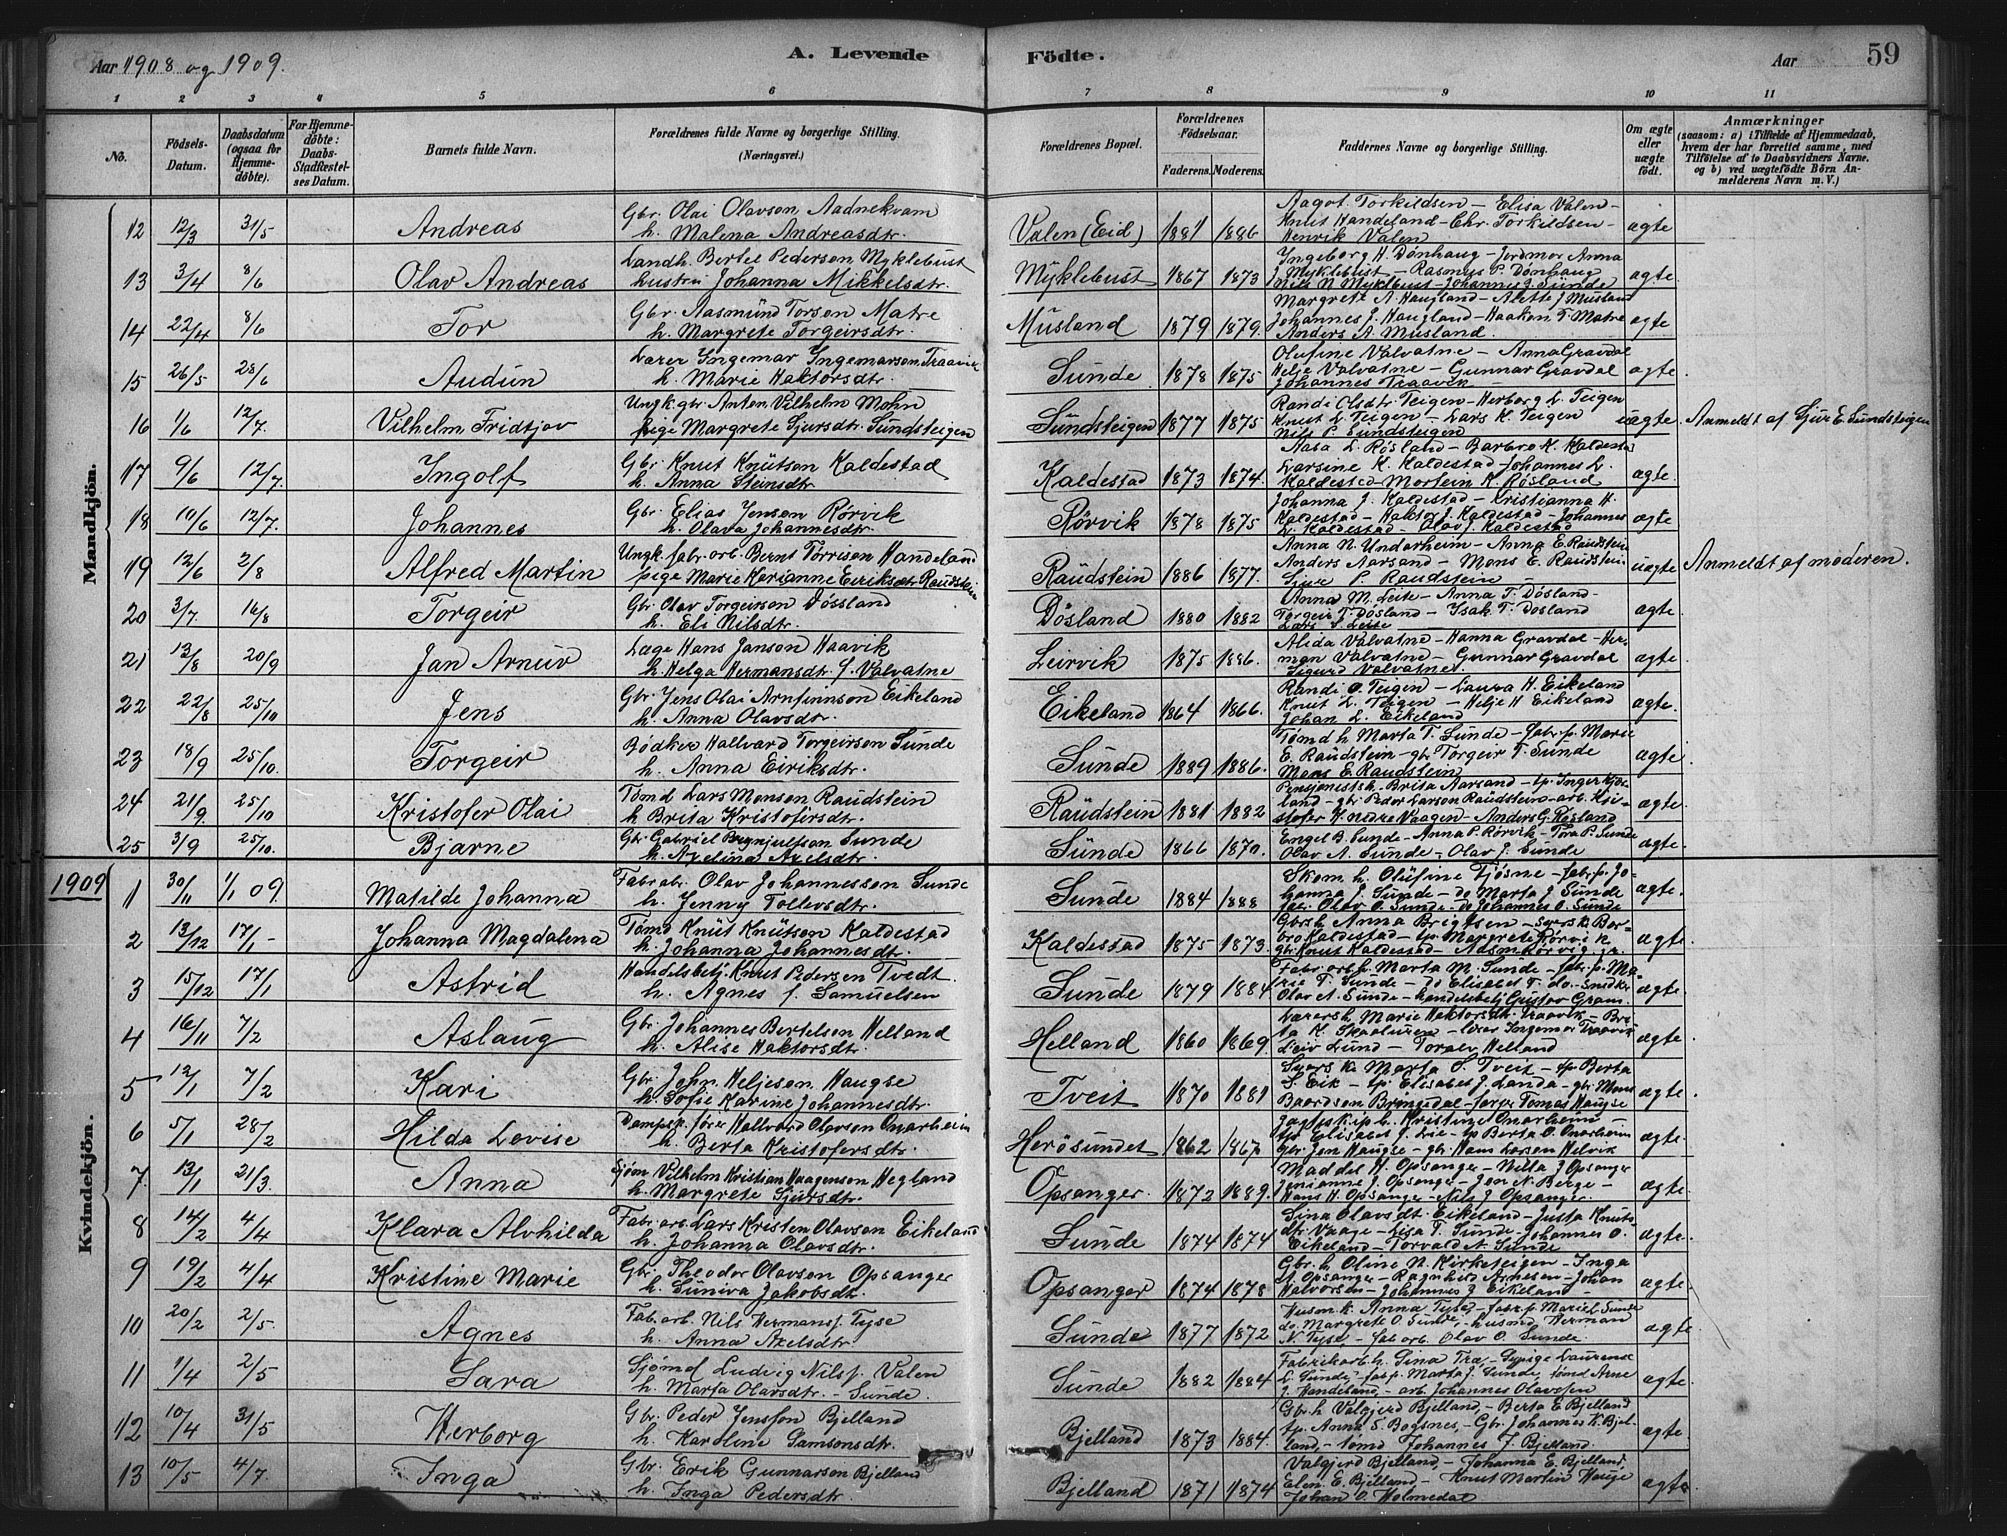 Aar 1908 og 1909.
A. Levende Födte.
Aar
59
1 2 3 4 5 6 7 8 9 10 11
No.
Födsels-Datum.
Daabsdatum (ogsaa for Hjemme-döbte).
For Hjemme-döbte: Daabs-Stadfæstel-ses Datum.
Barnets fulde Navn.
Forældrenes fulde Navne og borgerlige Stilling. (Næringsvei.)
Forældrenes Bopæl.
Forældrenes Födselsaar.
Faderens. Moderens.
Faddernes Navne og borgerlige Stilling.
Om ægte eller uægte födt.
Anmærkninger
(saasom: a) i Tilfælde af Hjemmedaab, hvem der har forrettet samme, med Tilföielse af to Daabsvidners Navne. og b) ved uægtefödte Börn An-melderens Navn m. V.)
Mandkjön.
12 12/3 31/5 Andreas Gbr. Olai Olavson Aadnekvam h. Malena Andreasdtr. Valen (Eid) 1881 1886 Aagot Torkildsen – Elisa Valen – Knut Handeland – Chr. Torkildsen – Henrik Valen ægte
13 3/4 8/6 Olav Andreas Landh. Bertel Pederson Myklebust hustru Johanna Mikkelsdtr. Myklebust 1867 1873 Ingeborg H. Dönhaug – Jordmor Anna J. Myklebust – Rasmus P. Dönhaug Nils N. Myklebust – Johannes J. Sunde ægte
14 22/4 8/6 Tor Gbr. Aasmund Torson Matre h. Margrete Torgeirsdtr. Musland 1879 1879. Margrete A. Haugland – Alette J. Musland Johannes J. Haugland – Haakon T. Matre Anders A. Musland. ægte
15 26/5 28/6 Audun Lærer Ingemar Ingemarson Traavik h. Marie Haktorsdtr. Sunde 1878 1875 Olufine Valvatne – Anna Gravdal Helje Valvatne – Gunnar Gravdal Johannes Traavik – ægte
16 1/6 12/7. Vilhelm Fridtjov Ungk. gbr. Anton Vilhelm Mohn pige Margrete Sjursdtr. Sundsteigen Sundsteigen 1877 1875 Randi Olsdtr. Teigen – Herborg L. Teigen Knut L. Teigen – Lars K. Teigen Nils P. Sundsteigen uægte Anmeldt af Sjur E. Sundsteigen
17 9/6 12/7. Ingolf Gbr. Knut Knutson Kaldestad h. Anna Steinsdtr. Kaldestad 1873 1874. Aasa L. Røsland – Barbro K. Kaldestad Larsine K. Kaldestad – Johannes L. Kaldestad – Mortein K. Røsland ægte.
18 10/6 12/7. Johannes Gbr. Elias Jenson Rørvik h. Olava Johannesdtr. Rørvik 1878 1875 Johanna J. Kaldestad – Kristianna H. Kaldestad – Haktor J. Kaldestad – Johannes L. Kaldestad – Olav J. Kaldestad ægte
19 12/6 2/8 Alfred Martin Ungk. fabr. arb. Bernt Tørrison Handeland pige Marie Karianne Eiriksdtr. Raudstein Raudstein 1886 1877. Anna N. Underheim – Anna E. Raudstein Anders Aarsand – Mons E. Raudstein P. Raudstein – uægte Anmeldt af moderen.
20 3/7. 16/8 Torgeir Gbr. Olav Torgeirson Døssland h. Eli Nilsdtr. Døsland 1880 1882 Anna M. Leite – Anna T. Døsland – Torgeir T. Døsland – Isak T. Døsland Lars J. Leite ægte
21 13/8 20/9 Jan Arnuv Læge Hans Janson Haavik h. Helga Hermansdtr. f. Valvatne Leirvik 1875 1886. Alida Valvatne – Hanna Gravdal – Her-man Valvatne – Gunnar Gravdal Sigurd Valvatne. ægte.
22 22/8 25/10 Jens Gbr. Jens Olai Arnfinnson Eikeland h. Anna Olavsdtr. Eikeland 1864 1866. Randi O. Teigen – Laura H. Eikeland Knut L. Teigen – Helje H. Eikeland Johan L. Eikeland ægte.
23 18/9 25/10. Torgeir Bødker Hallvard Torgeirson Sunde h. Anna Eiriksdtr. Sunde 1889 1886. Tømd. h. Marta T. Sunde – fabr. p. Marie E. Raudstein – gbr. Torgeir T. Sunde Mons E. Raudstein ægte.
24 21/9 25/10 Kristofer Olai Tømd. Lars Monson Raudstein h. Brita Kristofersdtr. Raudstein 1881 1882 Pensjonistsh. Brita Aarsand – tp. Inger Røs-land – gbr. Peder Larson Raudstein – arb. Kri-stofer Knudre Vaagen – Anders G. Røsland ægte.
25 3/9 25/10. Bjarne Gbr. Gabriel Brynjulfson Sunde h. Axelina Axelsdtr. Sunde 1866 1870. Engel B. Sunde – Anna P. Rørvik – Tora P. Sunde Olav A. Sunde – Olav J. Sunde ægte.
1909
Kvindekjön.
1 30/11 1/1 09. Matilde Johanna Fabr. arb. Olav Johannesson Sunde h. Jenny Tollevsdtr. Sunde 1884 1888 Skom. h. Olufine Tjøsne – fabr. p. Jo-hanna J. Sunde – do Marta J. Sunde fabr. Olav O. Sunde – do Johannes O. Sunde ægte.
2 13/12 17/1 – Johanna Magdalena Tømd Knut Knutson Kaldestad h. Johanna Johannesdtr. Kaldestad 1875 1873. Gbrsh. Anna Brigtsen – Bar-bro Kaldestad – tp. Margrete Rørvik gbr. Knut Kaldestad – ægte.
3 15/12 17/1 Astrid Handelsbetj. Knut Pedersen Tvedt h. Agnes f. Samuelsen Sunde 1879 1884 Fabr. arb. h. Marta M. Sunde – fabr. p. Ma-rie T. Sunde – do Elisabet T. do – Snidker Olav A. Sunde – handelsbetj. Gustav Gram. ægte.
4 16/11 7/2 Aslaug Gbr. Johannes Bertelson Helland h. Alise Haktorsdtr. Helland 1860 1869. Lærersh. Marie Haktorsdtr. Traavik – Bri-ta K. Skaaluren – lærer Ingemar Traavik Leiv Lund – Toralv Helland ægte.
5 12/1 7/2 Kari Gbr. John Heljeson Haugse h. Sofie Karine Johannesdtr. Tveit 1870 1881 Marta O. Tveit – tp. Berta S. Eik – tp. Elisabet J. Landa – gbr. Mons Baardson Bringedal – Tomas Haugse ægte.
6 5/1 28/2 Hilda Lovise Dampsk. fører Hallvard Olavson Onarheim h. Berta Kristofersdtr. Herøsundet 1862 1867 h. Kristine Onarheim tp. Elisabet J. Lie – tp. Berta O. Onarheim gbr. Jon Haugse – gbr. Hans Larsen Helvik ægte.
7. 13/1 21/3. Anna Sjøm. Vilhelm Kristian Haagenson Hegland h. Margrete Sjursdtr. Opsanger. 1872 1889. Maddel H. Opsanger – Nilla J. Opsanger Jenianne J. Opsanger – Jon N. Berge – Hans H. Opsanger – Nils J. Opsanger. ægte.
8 14/2 4/4 Klara Alvhilda Fabr. arb. Lars Kristen Olavson Eikeland h. Johanna Olavsdtr. Sunde 1874 1874 Sina Olavsdt. Eikeland – Justa Knuts-dtr. Vaage – Lisa T. Sunde Johannes O. Eikeland – Torvald A. Sunde ægte.
9 19/2 4/4 Kristine Marie Gbr. Theodor Olavson Opsanger h. Suniva Jakobsdtr. Opsanger 1874 1878 Gbr. h. Oline N. Kirketeigen – Inga Opsanger – Ragnhild Arnesen – Johan Halvorsen – Johannes J. Eikeland – ægte.
10 20/2 2/5. Agnes Fab. arb. Nils Hermansf. Tyse h. Anna Axelsdtr. Sunde 1877 1872 Husm. k. Anna Tyse – fabr. p. Marie L. Sunde do. Margrete O. Sunde – husmd. Herman N. Tyse – fab. arb. Olav O. Sunde. ægte
11 1/4 2/5 Sara Sjømd Ludvig Nilsf. Valen h. Marta Olavsdtr. – Sunde. Sunde 1882 1884 Fabrikarb. h. Sina Træ – Sypige Laurense L. Sunde – fas p. Marta J. Sunde, tømd Arne J. Handeland – arb. Johannes Olavsson ægte.
12 10/4 31/5 Herborg Gbr. Peder Jensson Bjelland h. Karoline Samsonsdtr. Bjelland 1873 1884. Gbr. h. Valgjerd Bjelland – Berta E. Bjelland tp. Anna S. Bogsnes, – Gbr. Johannes K. Bjel-land, – tømd Johannes J. Bjelland. ægte
13 10/5 4/7. Inga Gbr. Erik Gunnarson Bjelland h. Inga Pedersdtr. Bjelland 1871 1874 Valgjerd Bjelland – Johanna E. Bjelland. Elen E. Bjelland – Knut Martin Hauge Johan O. Holmedal ægte